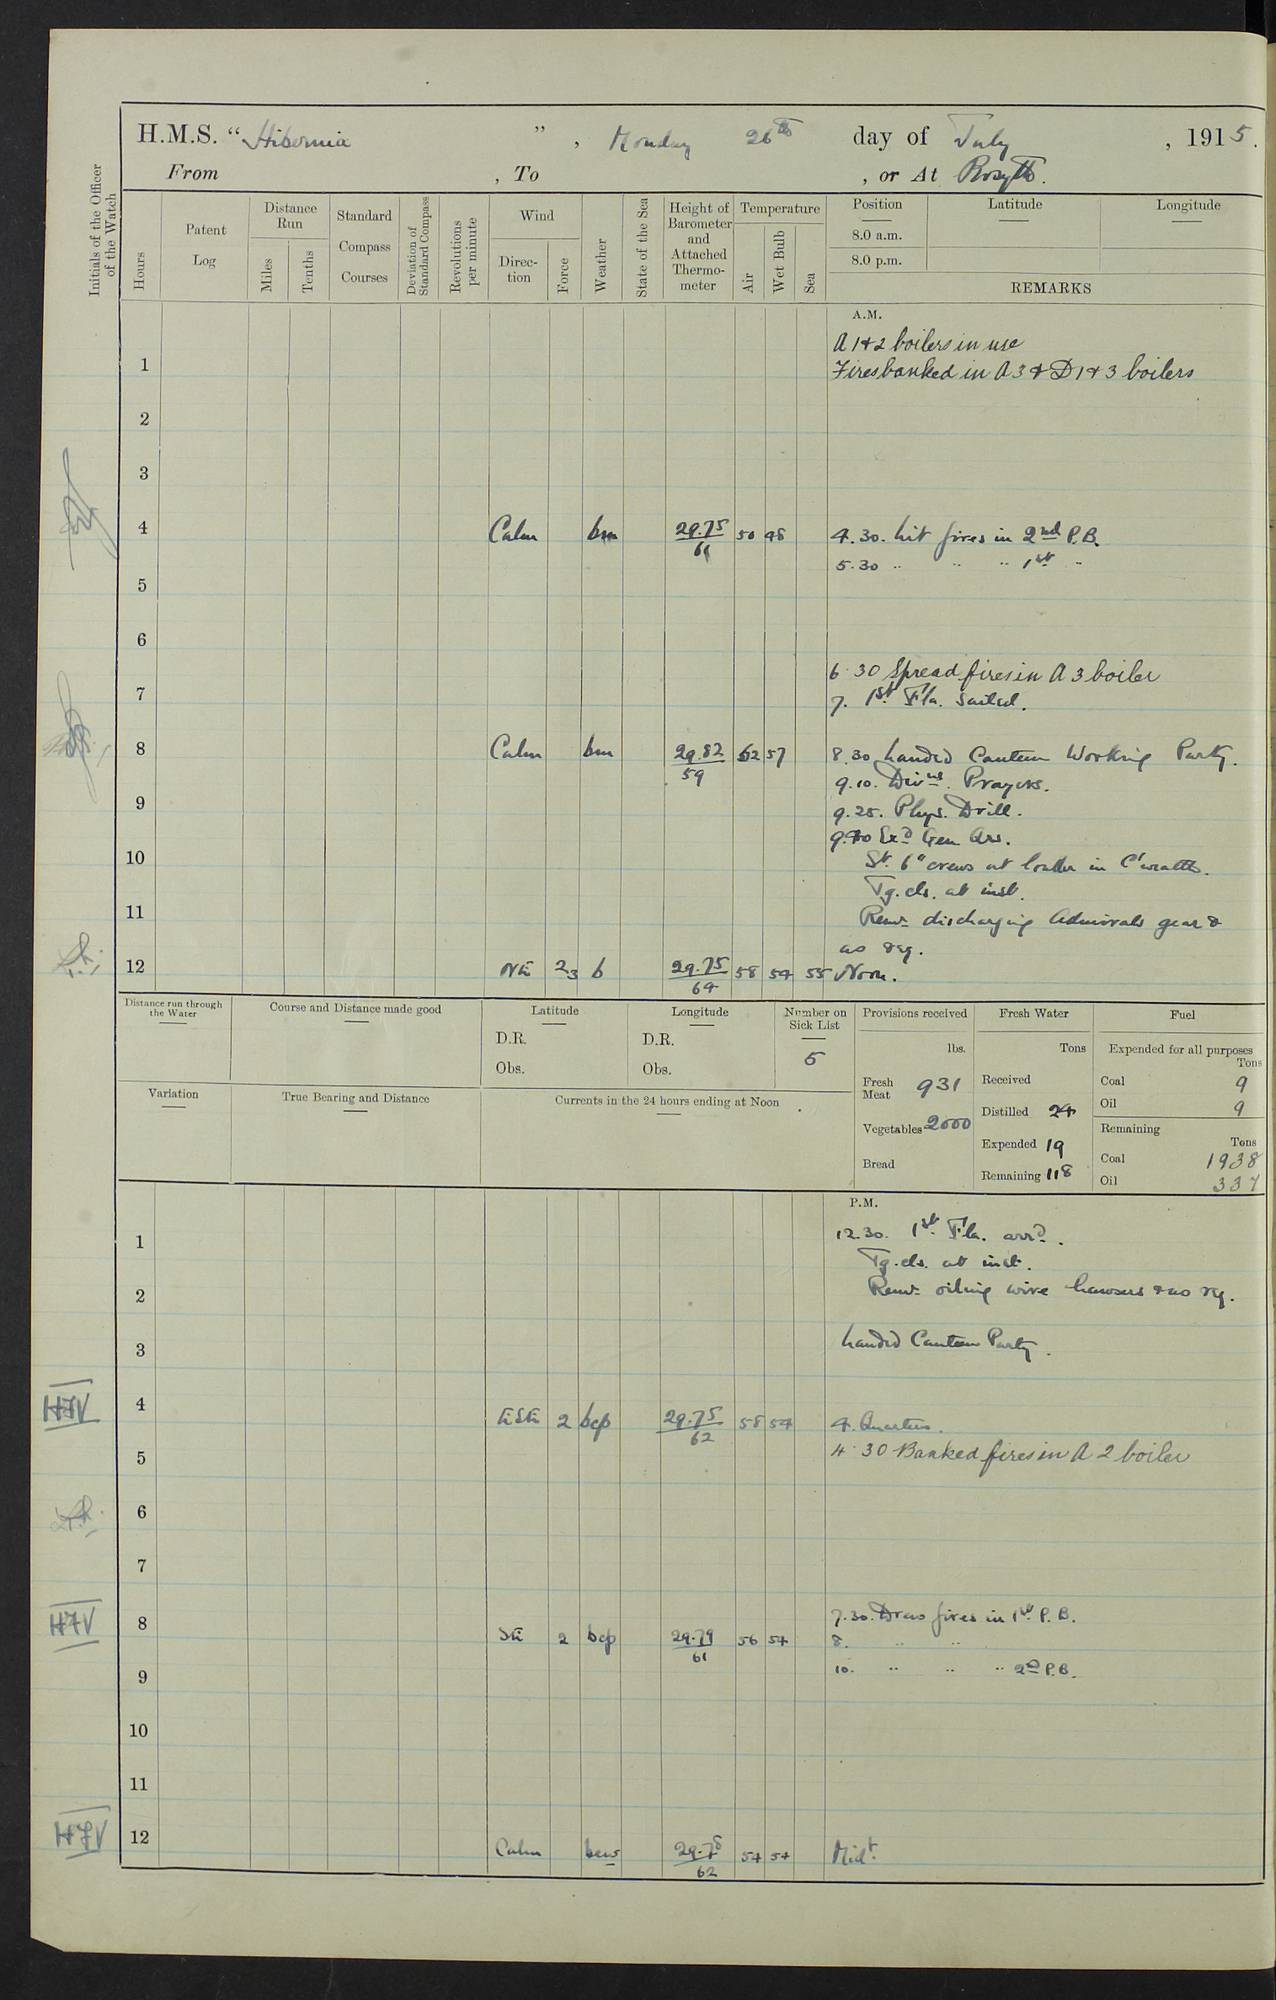 H.M.S. "Hibernia", Monday 26th day of July, 1915.
From , To , or At Rosyth.
Initials of the Officer of the Watch
Hours
Patent Log
Distance Run
Miles
Tenths
Standard Compass Courses
Deviation of Standard Compass
Revolutions per minute
Wind
Direction
Force
Weather
State of the Sea
Height of Barometer and Attached Thermometer
Temperature
Air
Wet Bulb
Sea
Position Latitude Longitude
8.0 a.m.
8.0 p.m.
REMARKS
A.M.
A 1 & 2 boilers in use
1 Fires banked in A 3 & D 1 & 3 boilers
2
3
4 Calm bm 29.75/61 50 48 4.30. Lit fires in 2nd P.B.
5.30 " " " 1st "
5
6
6.30 Spread fires in A 3 boiler
7 7. 1st Fla. Sailed.
8 Calm bm 29.82/59 62 57 8.30 Landed Canteen Working Party.
9.10. Divns. Prayers.
9 9.25. Phys. Drill.
9.40 Exd Gen Qrs.
10 St. 6" crews at loader in C'wealth.
Tg. cls. at inst.
11 Remr discharging Admirals gear &
as req.
12 NE 2.3 b 29.75/64 58 54 55 Noon.
Distance run through the Water
Course and Distance made good
Latitude
D.R.
Obs.
Longitude
D.R.
Obs.
Number on Sick List
5
Provisions received
lbs.
Fresh Meat 931
Vegetables 2000
Bread
Fresh Water
Tons
Received
Distilled 24
Expended 19
Remaining 118
Fuel
Expended for all purposes
Tons
Coal 9
Oil 9
Remaining
Tons
Coal 1938
Oil 337
Variation
True Bearing and Distance
Currents in the 24 hours ending at Noon
P.M.
1 12.30. 1st Fla. arrd.
Tg. cls. at inst.
2 Remr oiling wire hawsers & as req.
3 Landed Canteen Party.
4 ESE 2 bcp 29.75/62 58 54 4. Quarters.
HFV
5 4.30 Banked fires in A 2 boiler
6
7
8 SE 2 bcp 29.79/61 56 54 7.30. Draw fires in 1st P.B.
HFV
8. " "
9 10. " " " 2nd P.B.
10
11
12 Calm bcw 29.78/62 54 54 Midt.
HFV